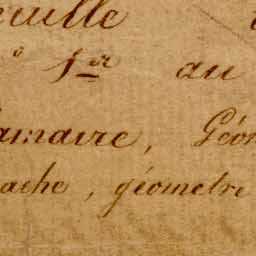 euille
° 1er au
amaire, Géom
ache, géometre